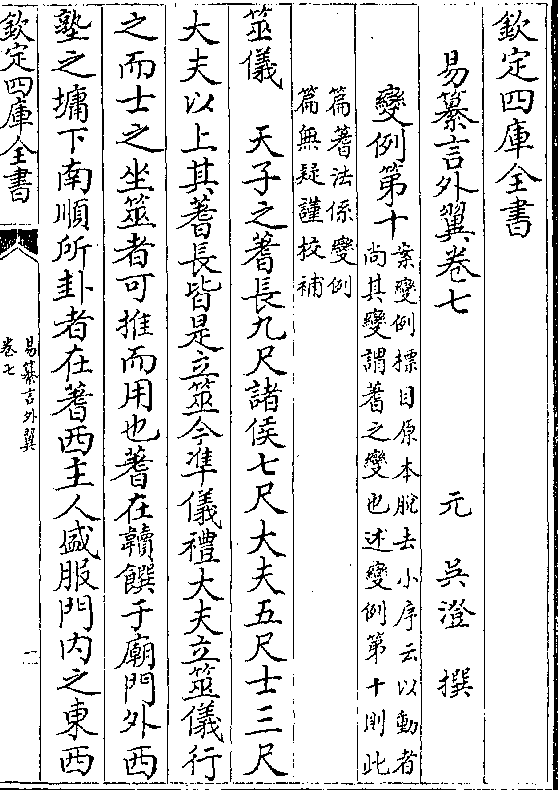 欽定四庫全書
易纂言外翼卷七
元　吳澄　撰
變例第十
案變例標目原本脫去小序云以動者
尚其變謂蓍之變也述變例第十則此
篇蓍法係變例
篇無疑謹校補
筮儀　天子之蓍長九尺諸侯七尺大夫五尺士三尺
大夫以上其蓍長皆是立筮今準儀禮大夫立筮儀行
之而士之坐筮者可推而用也蓍在韇饌于廟門外西
塾之墉下南順所卦者在蓍西主人盛服門內之東西
欽定四庫全書
易纂言外翼
卷七
一